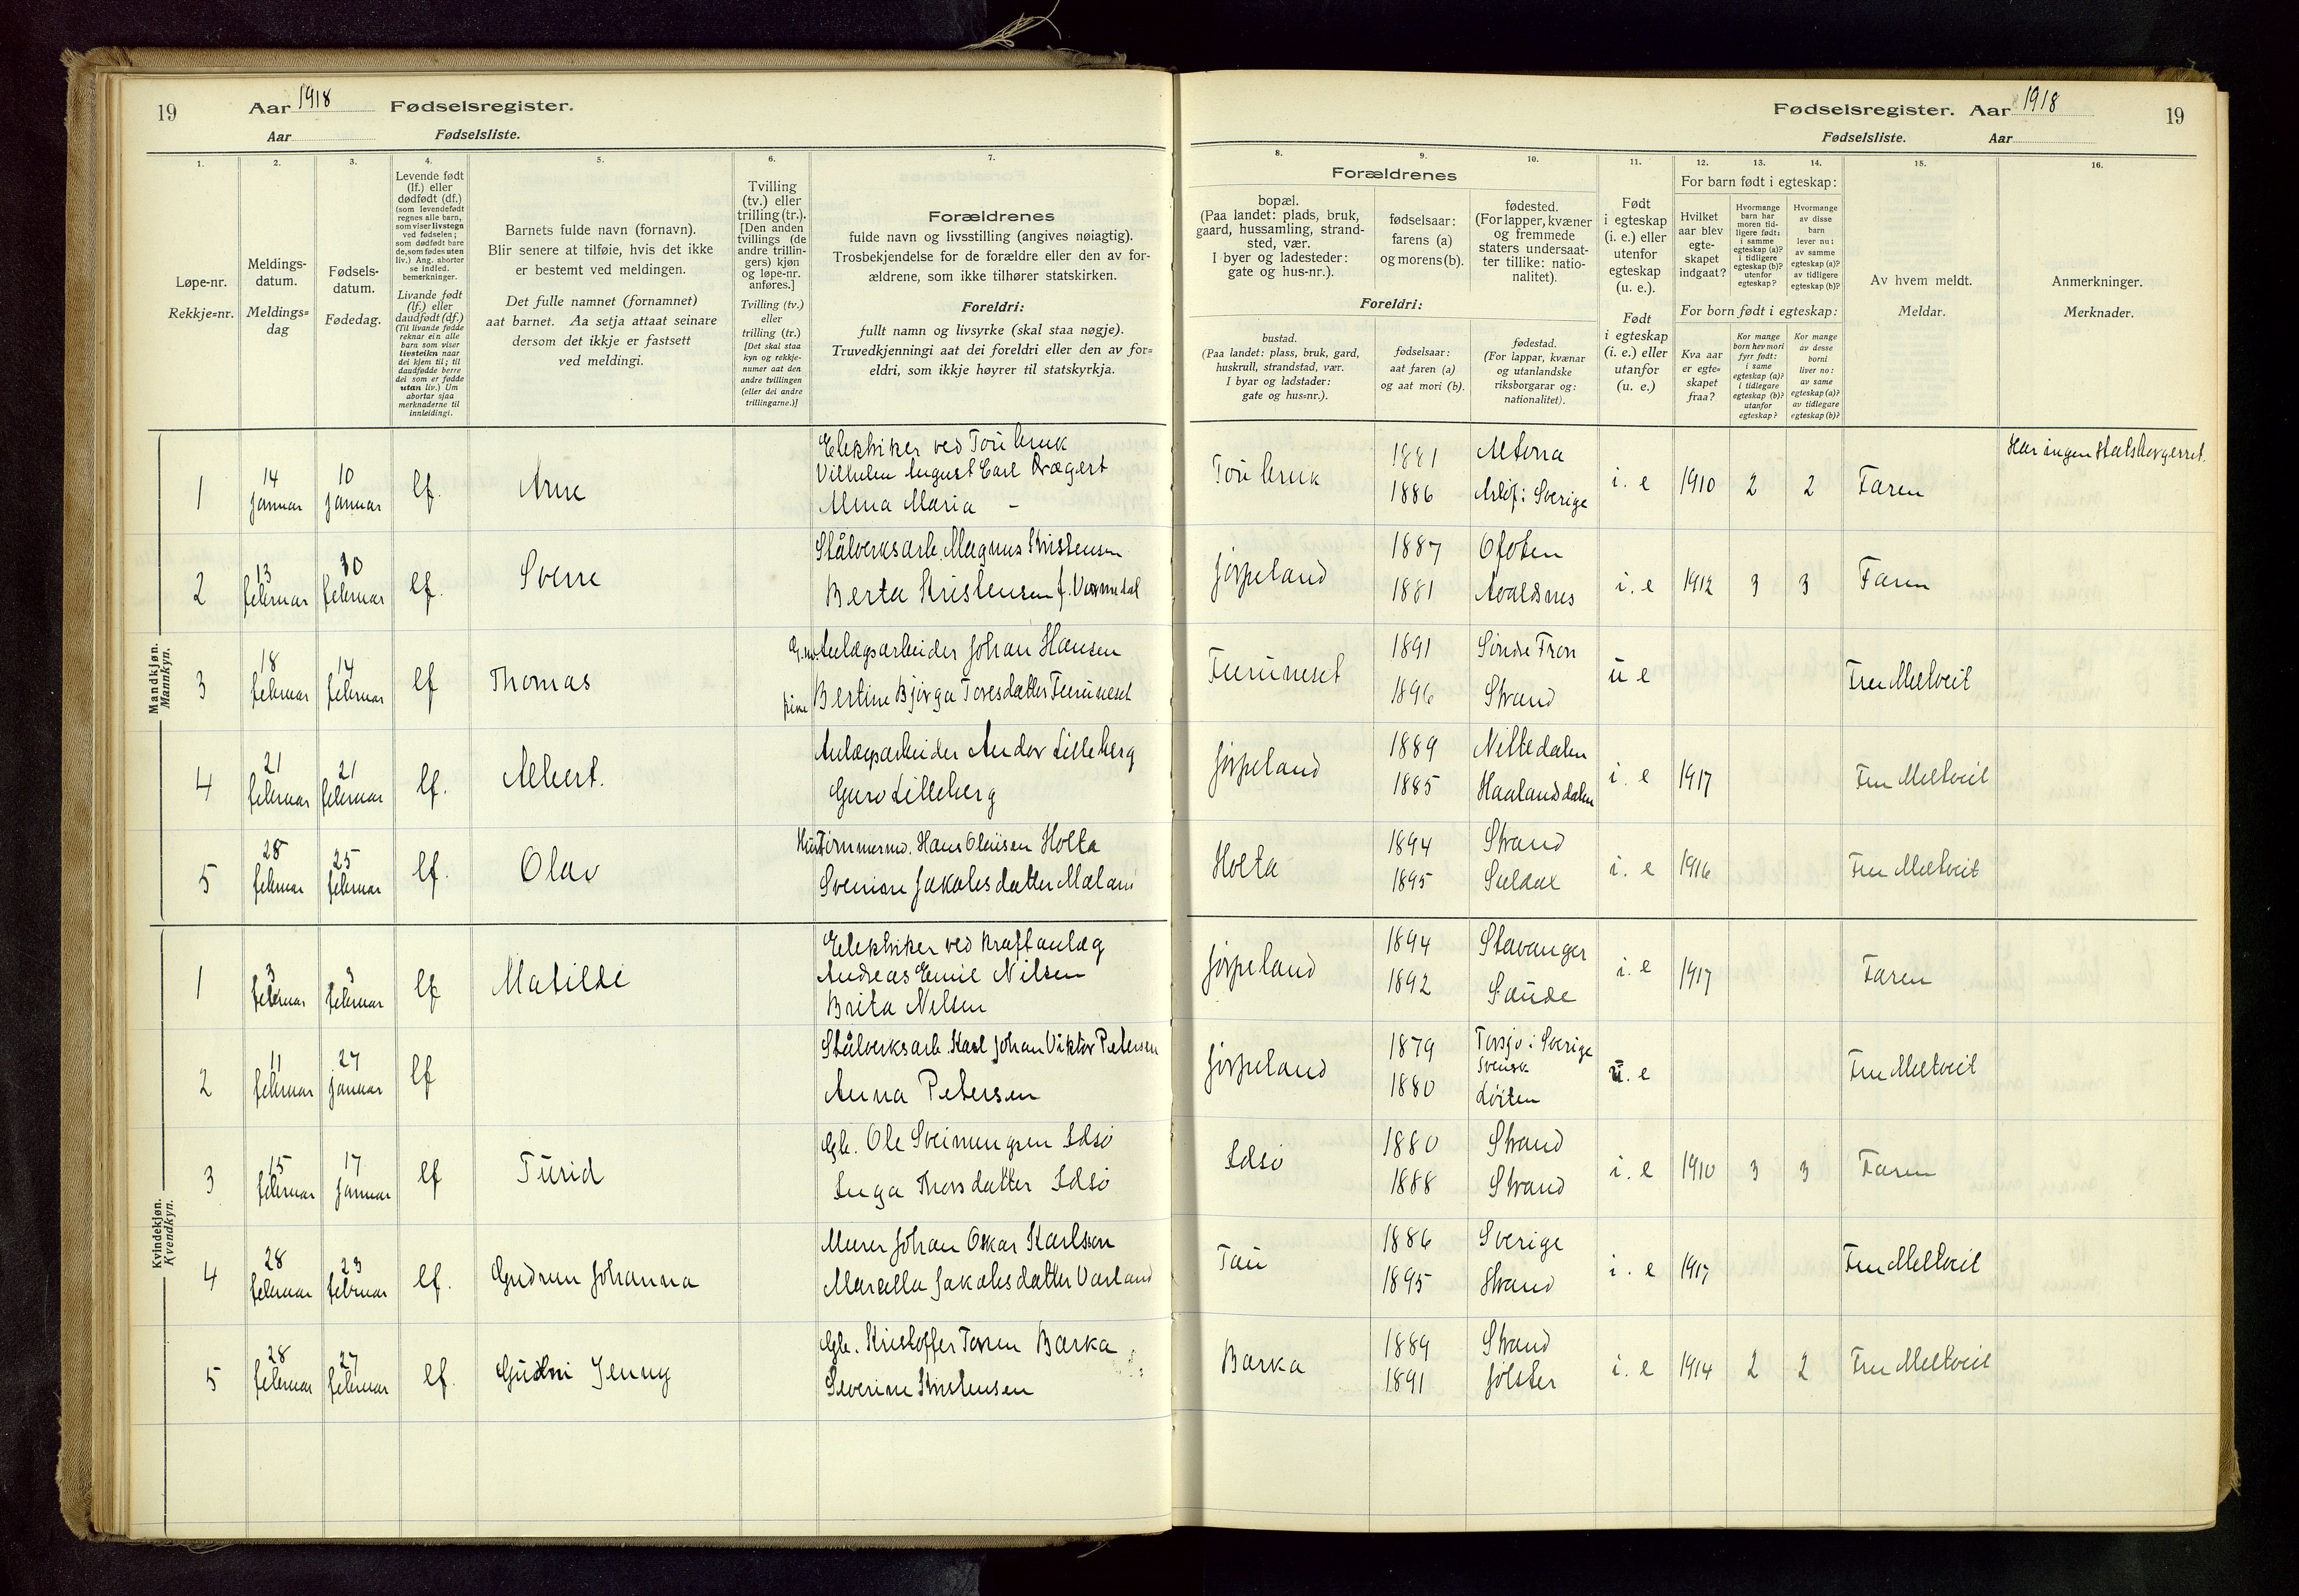 19 Aar 1918 Fødselsregister.
Aar Fødselsliste.
Fødselsregister. Aar 1918 19
Fødselsliste. Aar
1. 2. 3. 4. 5. 6. 7.
Løpe-nr.
Rekkje=nr.
Meldings-
datum.
Meldings=
dag
Fødsels-
datum.
Fødedag.
Levende født
(lf.) eller
dødfødt (df.)
(som levendefødt
regnes alle barn,
som viser livstegn
ved fødselen;
som dødfødt bare
de, som fødes uten
liv.) Ang. aborter
se indled.
bemerkninger.
Livande født
(lf.) eller
daudfødt (df.)
(Til livande fødde
reknar ein alle
barn som viser
livsteiken naar
dei kjem til; til
daudfødde berre
dei som er fødde
utan liv.) Um
abortar sjaa
merknaderne til
innleidingi.
Barnets fulde navn (fornavn).
Blir senere at tilføie, hvis det ikke
er bestemt ved meldingen.
Det fulle namnet (fornamnet)
aat barnet. Aa setja attaat seinare
dersom det ikkje er fastsett
ved meldingi.
Tvilling
(tv.) eller
trilling (tr.).
[Den anden
tvillings (de
andre trillin-
gers) kjøn
og løpe-nr.
anføres.]
Tvilling (tv.)
eller
trilling (tr.)
[Det skal staa
kyn og rekkje-
numer aat den
andre tvillingen
(eller dei andre
trillingarne.)]
Forældrenes
fulde navn og livsstilling (angives nøiagtig).
Trosbekjendelse for de forældre eller den av for-
ældrene, som ikke tilhører statskirken.
Foreldri:
fullt namn og livsyrke (skal staa nøgje).
Truvedkjenningi aat dei foreldri eller den av for=
eldri, som ikkje høyrer til statskyrkja.
8. 9. 10. 11. 12. 13. 14. 15. 16.
Forældrenes
bopæl.
(Paa landet: plads, bruk,
gaard, hussamling, strand-
sted, vær.
I byer og ladesteder:
gate og hus-nr.).
fødselsaar:
farens (a)
og morens (b).
fødested.
(For lapper, kvæner
og fremmede
staters undersaat-
ter tillike: natio-
nalitet).
Foreldri:
bustad.
(Paa landet: plass, bruk, gard,
huskrull, strandstad, vær.
I byar og ladstader:
gate og hus=nr.).
fødselsaar:
aat faren (a)
og aat mori (b).
fødestad.
(For lappar, kvænar
og utanlandske
riksborgarar og:
nationalitet).
Født
i egteskap
(i. e.) eller
utenfor
egteskap
(u. e.).
Født
i egteskap
(i. e.) eller
utanfor
(u. e.)
For barn født i egteskap:
Hvilket
aar blev
egte-
skapet
indgaat?
Hvormange
barn har
moren tid-
ligere født:
i samme
egteskap (a)?
i tidligere
egteskap (b)?
utenfor
egteskap?
Hvormange
av disse
barn
lever nu:
av samme
egteskap (a)?
av tidligere
egteskap (b)?
For born født i egteskap:
Kva aar
er egte=
skapet
fraa?
Kor mange
born hev mori
fyrr født:
i same
egteskap (a)?
i tidlegare
egteskap (b)?
utanfor
egteskap?
Kor mange
av desse
borni
liver no:
av same
egteskap (a)?
av tidlegare
egteskap (b)?
Av hvem meldt.
Meldar.
Anmerkninger.
Merknader.
Mandkjøn.
Mannkyn.
1 14 januar 10 januar lf. Arne
Elektriker ved Tou bruk
Vilhelm August Carl Drægert
Alma Maria -
Tou bruk 1881 Altona
1886 Arlöf i Sverige
i. e 1910 2 2 Faren
Har ingen statsborgerret.
2 13 februar 30 februar lf. Sverre
Stålverksarb. Magnus Kristensen
Berta Kristensen f. Vormedal
Jørpeland 1887 Ofoten
1881 Avaldsnes
i. e 1912 3 3 Faren
3 18 februar 14 februar lf Thomas
Anlægsarbeider Johan Hansen
pike Bertine Bjørga Toresdatter Furuneset
Furuneset 1891 Søndre Fron
1896 Strand
u e Fru Meltveit
4 21 februar 21 februar lf. Albert.
Anlægsarbeider Andor Lilleberg
Guro Lilleberg
Jørpeland 1889 Nittedalen
1885 Haalandsdalen
i. e 1917 Fru Meltveit
5 28 februar 25 februar lf. Olav
Tømmermd. Hans Olausen Holta
Sverine Jakobsdatter Maland
Holta 1894 Strand
1895 Suldal
i. e 1916 Fru Meltveit
Kvindekjøn.
Kvendkyn.
1 3 februar 3 februar lf Matilde
Elektriker ved kraftanlæg
Andreas Emil Nilsen
Brita Nilsen
Jørpeland 1894 Stavanger
1892 Saude
i. e 1917 Faren
2 11 februar 27 januar lf
Stålverksarb. Karl Johan Viktor Petersen
Anna Petersen
Jørpeland 1879 Torsjø i Sverige
svensk
1880 Løiten
u. e Fru Meltveit
3 15 februar 17 januar lf Turid
Gb. Ole Sveinungsen Idsø
Inga Thorsdatter Idsø
Idsø 1880 Strand
1888 Strand
i. e 1910 3 3 Faren
4 28 februar 23 februar lf. Gudrun Johanna
Murer Johan Oskar Karlsen
Marella Jakobsdatter Varland
Tau 1886 Sverige
1895 Strand
i. e 1917 Fru Meltveit
5 28 februar 27 februar lf. Gudni Jenny
Gb. Kristoffer Toresen Barka
Severine Kristensen
Barka 1889 Strand
1891 Jølster
i. e 1914 2 2 Fru Meltveit